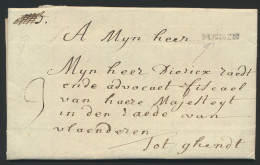 A Mijn heer
Mijn heer Diericx raedt
ende advocaet fiscael
van haere Majesteyt
in den raede van
vlaenderen
tot ghendt